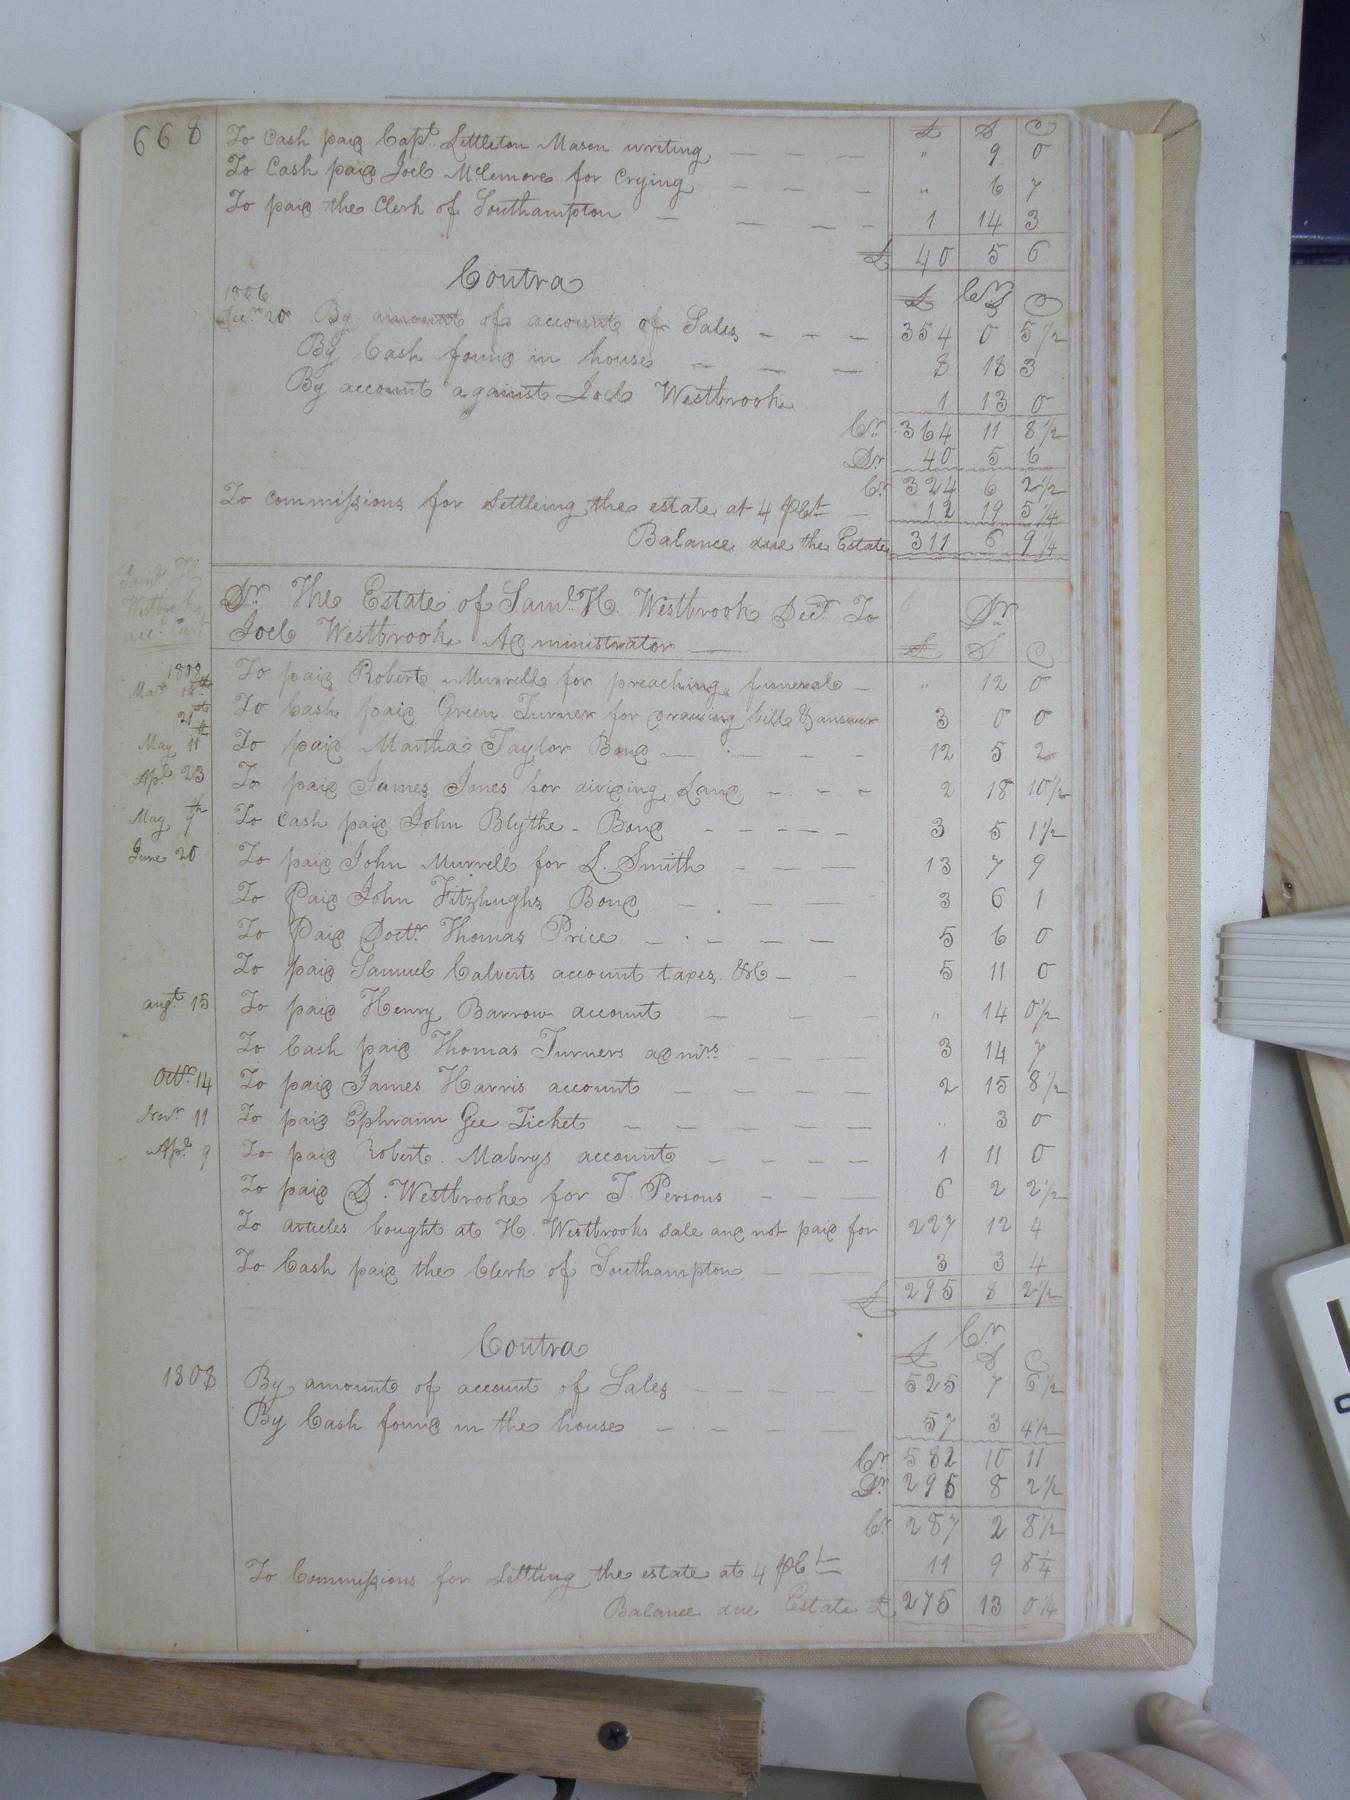 668
£ S D
To Cash paid Capt. Littleton Mason writing — — — " 9 0
To Cash paid Joel McLemore for Crying — — — " 6 7
To paid the Clerk of Southampton — — — — 1 14 3
£ 40 5 6
Contra Cr
£ S D
1806
Decr. 20 By amount of account of Sales - - - 354 0 5 1/2
By Cash found in house — — — 8 18 3
By account against Joel Westbrook 1 13 0
Cr. 364 11 8 1/2
Dr. 40 5 6
Cr. 324 6 2 1/2
To commissions for Settleing the estate at 4 pCt — 12 19 5 1/4
Balance due the Estate 311 6 9 1/4
Saml. H
Westbrooks
acct. Curt.
Dr. The Estate of Saml. H. Westbrook Decd. To Dr
Joel Westbrook Administrator — £ S D
1808
Mar 18th To paid Robert Murrell for preaching funeral — " 12 0
21st To Cash paid Green Turner for drawing bill & answer 3 0 0
May 11th To paid Martha Taylor Bond — - - - 12 5 2
Apl. 23 To paid James Jones for dividing Land - - - 2 18 10 1/2
May 9th To Cash paid John Blythe - Bond - - - - - 3 5 1 1/2
June 20 To paid John Murrell for L. Smith - — — 13 7 9
To Paid John Fitzhughs Bond — - — — 3 6 1
To Paid Doctr. Thomas Price — - — — — 5 6 0
To paid Samuel Calverts account taxes &C — — 5 11 0
augt. 15 To paid Henry Barrow account — — — " 14 0 1/2
To Cash paid Thomas Turners admrs — — — — 3 14 7
Octr. 14 To paid James Harris account — — — — 2 15 8 1/2
Novr. 11 To paid Ephraim Gee Ticket — — — — — " 3 0
Apl. 9 To paid Robert Mabrys account — — — — 1 11 0
To paid D. Westbrooke for T. Persons — — — 6 2 2 1/2
To articles bought at H. Westbrooks sale and not paid for 227 12 4
To Cash paid the Clerk of Southampton — — 3 3 4
£ 295 8 2 1/2
Contra Cr
£ S D
1808 By amount of account of Sales — — — — — 525 7 6 1/2
By Cash found in the house — — — — — 57 3 4 1/2
Cr. 582 10 11
Dr. 295 8 2 1/2
Cr. 287 2 8 1/2
To Commissions for Settling the estate at 4 pCt 11 9 8 1/4
Balance due Estate £ 275 13 0 1/4